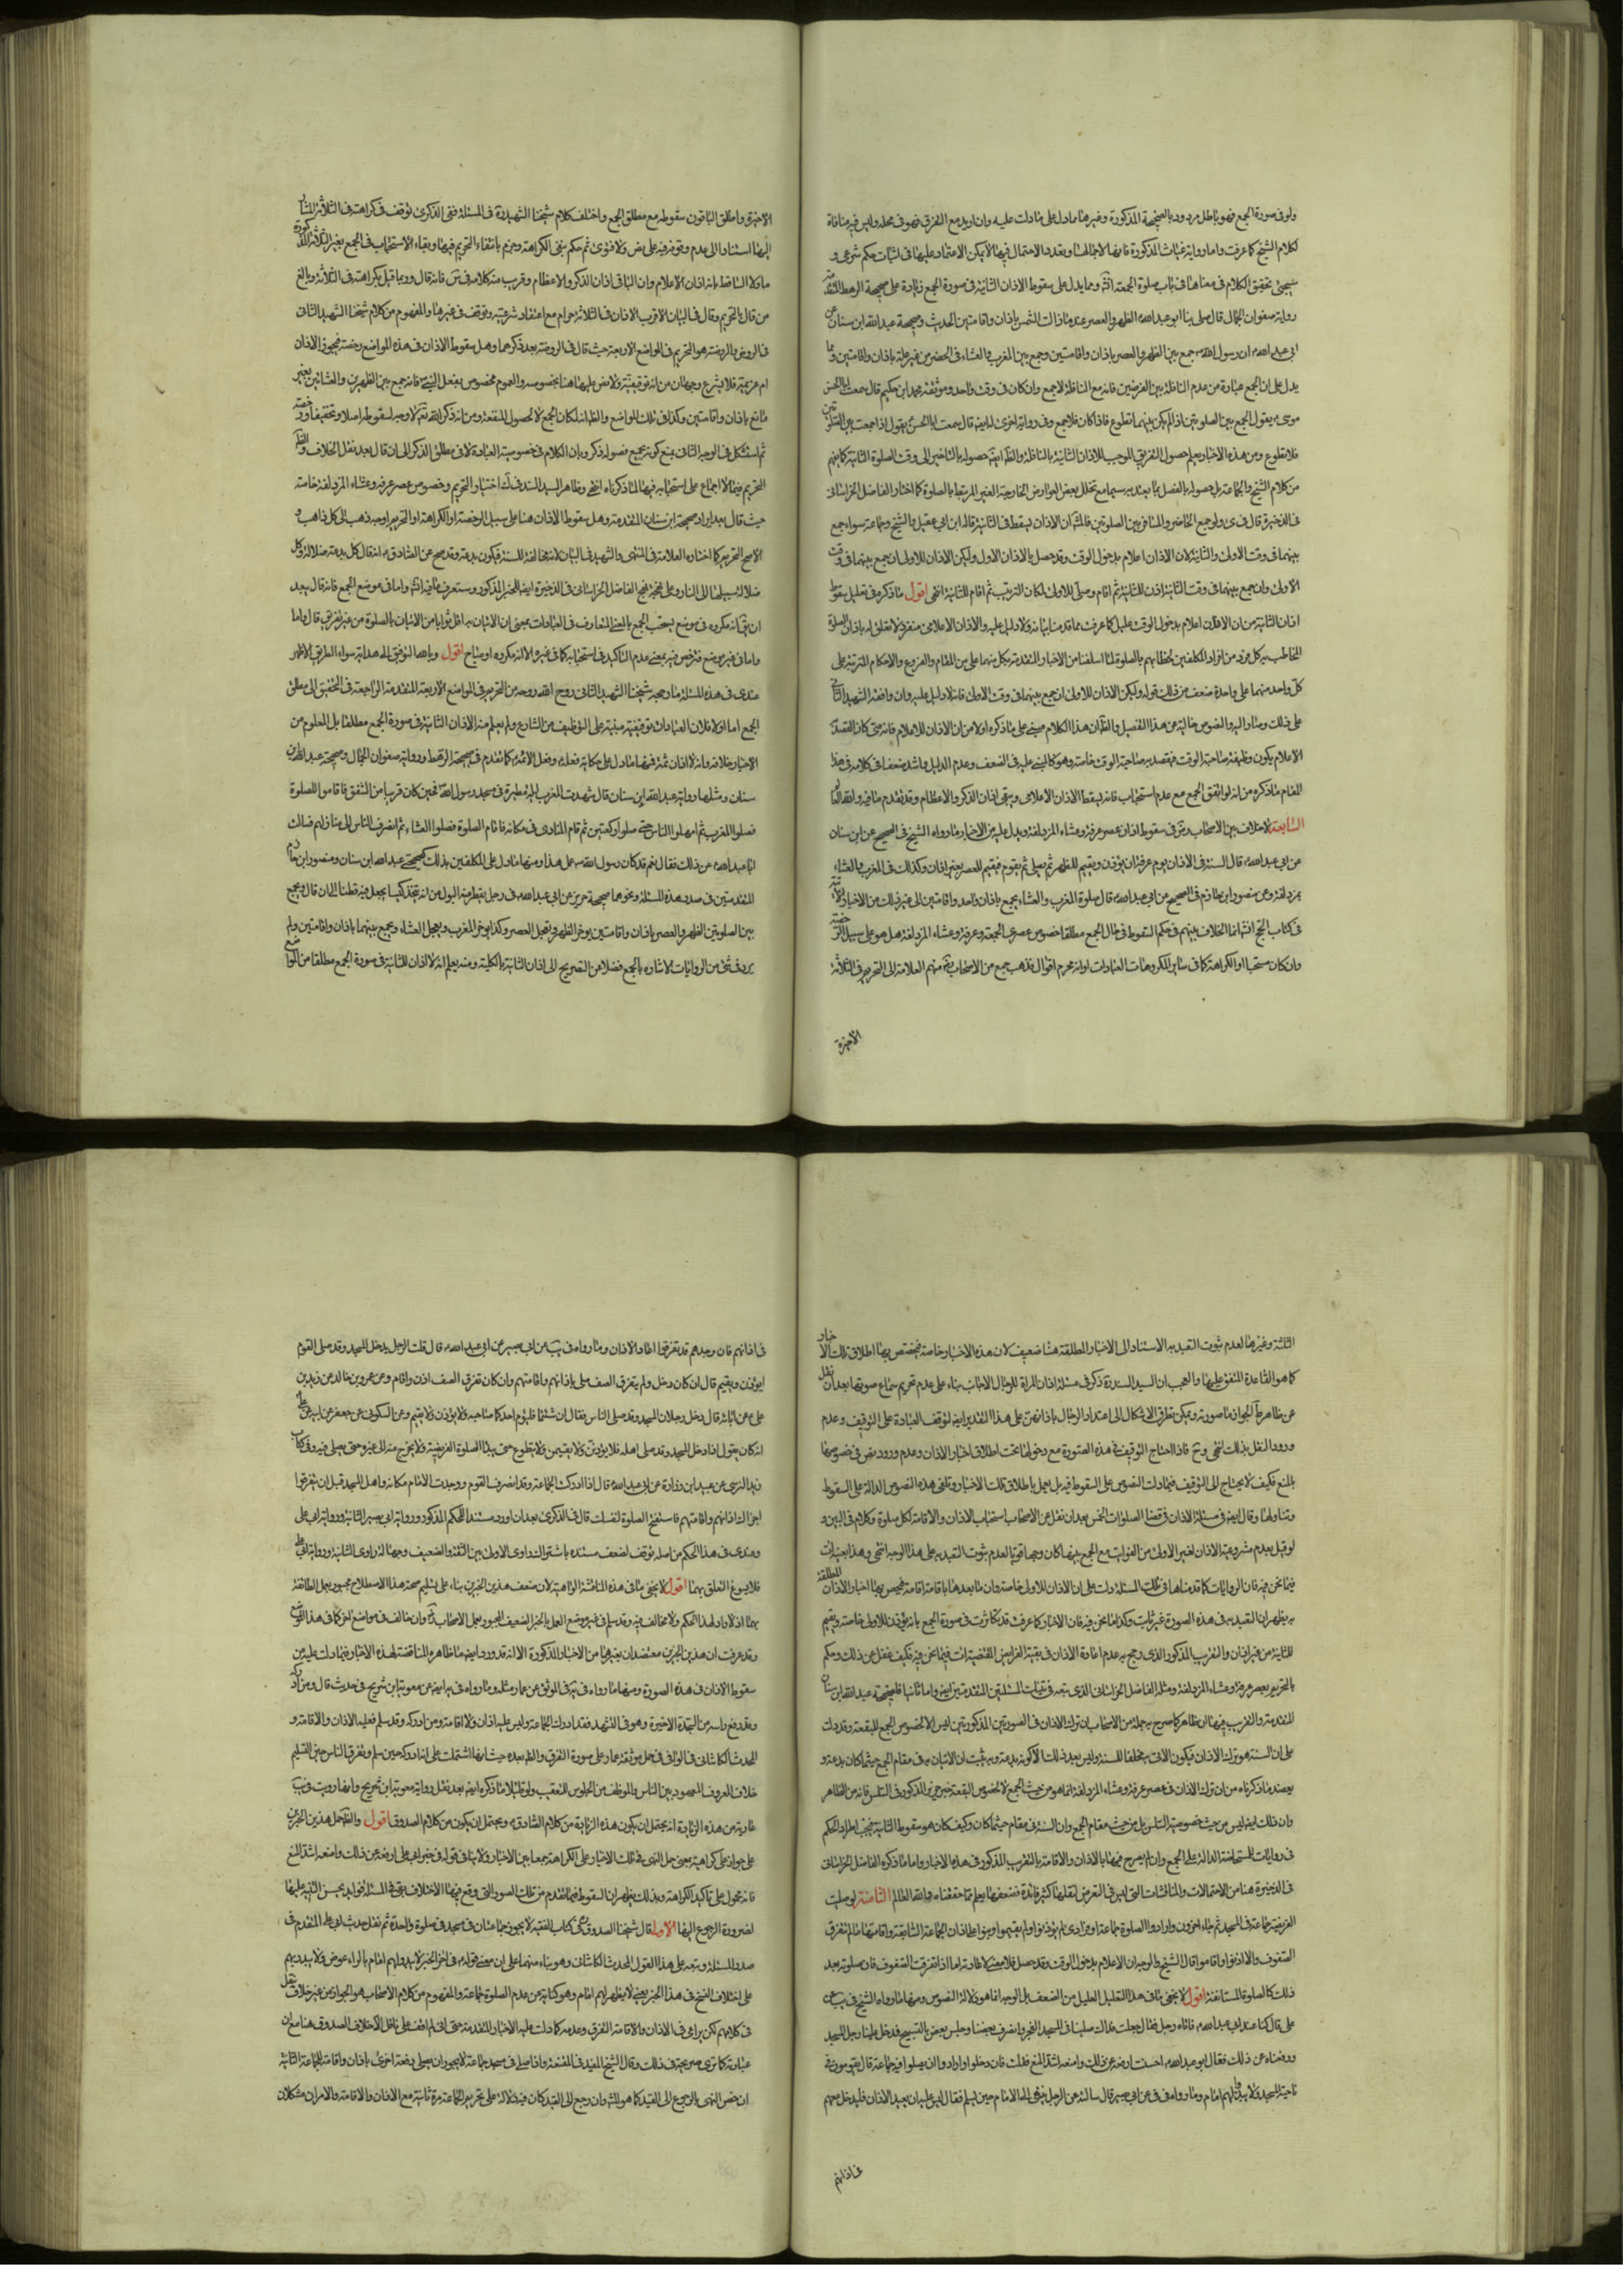 ولو في صورة الجمع فهو باطل مردود بالصحيحة المذكورة وغيرها مما دل على ما دلت عليه وان اريد مع التفرق فهو في محله وليس فيه منافاة
لكلام الشيخ كما عرفت واما رواية غياث المذكورة فانها لاجمالها وتعدد الاحتمال فيها لا يمكن الاعتماد عليها في اثبات حكم شرعي و
سيجئ تحقيق الكلام في معناها في باب صلوة الجمعة انش ومما يدل على سقوط الاذان الثانية في صورة الجمع زيادة على صحيحة الرهط المتقدمة
رواية صفوان الجمال قال صلى بنا ابو عبد الله الظهر والعصر عندما زالت الشمس باذان واقامتين الحديث وصحيحة عبد الله ابن سنان عن
ابي عبد الله ان رسول الله جمع بين الظهر والعصر باذان واقامتين وجمع بين المغرب والعشاء في الحضر من غير علة باذان واقامتين ومما
يدل على ان الجمع عبارة عن عدم النافلة بين الفرضين فانه مع النافلة لا جمع وان كان في وقت واحد وموثقة محمد ابن حكيم قال سمعت ابا الحسن
موسى يقول الجمع بين الصلوتين اذا لم يكن بينهما تطوع فاذا كان فلا جمع وفي رواية اخرى له ايضا قال سمعت ابا الحسن يقول اذا جمعت بين الصلوتين
فلا تطوع ومن هذه الاخبار يعلم حصول التفريق الموجب للاذان الثانية بالنافلة والظ ايضا حصوله بالتاخير الى وقت الصلوة الثانية كما يفهم
من كلام الشيخ والجماعة بل حصوله بالفصل بما يعتد به سيما مع تخلل بعض العوارض الخارجية الغير المرتبطة بالصلوة كما اختار الفاضل الخراساني
في الذخيرة قال في ى ولو جمع الحاضر والمسافر بين الصلوتين فالمشهور ان الاذان يسقط في الثانية قاله ابن ابي عقيل والشيخ وجماعة سواء جمع
بينهما في وقت الاولى والثانية لان الاذان اعلام بدخول الوقت وقد حصل بالاذان الاول وليكن الاذان للاولى ان جمع بينهما في وقت
الاولى وان جمع بينهما في وقت الثانية اذن للثانية ثم اقام وصلى للاولى لمكان الترتيب ثم اقام للثانية انتهى اقول ما ذكره في تعليل سقوط
اذان الثانية من ان الاذان اعلام بدخول الوقت عليل كما عرفت مما قدمنا بيانه ولا دليل عليه والاذان الاعلامي منفرد لا تعلق له باذان الصلوة
المخاطب به كل فرد من افراد المكلفين لخطابهم بالصلوة لما اسلفنا من الاخبار المتقدمة بكل منهما على من المقام والفروع والاحكام المترتبة على
كل واحد منهما على واحدة ضعف من ذلك قوله وليكن الاذان للاولى ان جمع بينهما في وقت الاولى فانه لا دليل عليه وان وافقه الشهيد الثاني
على ذلك وما واليه والنصوص خالية عن هذا التفصيل والظ ان هذا الكلام مبني على ما ذكره اولا من ان الاذان للاعلام فانه متى كان القصد
الاعلام يكون وظيفة صاحبة الوقت فيقصد به صاحبة الوقت خاصة وهو كالمبني عليه في الضعف وعدم الدليل واشد ضعفا في كلامه في هذا
المقام ما ذكره من انه لو اتفق الجمع مع عدم استحبابه فانه يسقط الاذان الاعلامي ويبقى اذان الذكر والاعظام وقد تقدم ما فيه والله العالم
السابعة لا خلاف بين الاصحاب رض في سقوط اذان عصر عرفة وعشاء المزدلفة ويدل عليه من الاخبار ما رواه الشيخ في الصحيح عن ابن سنان
عن ابي عبد الله قال السنة في الاذان يوم عرفة ان يؤذن ويقيم للظهر ثم يصلي ثم يقوم فيقيم للعصر بغير اذان وكذلك في المغرب والعشاء
بمزدلفة وعن منصور ابن حازم في الصحيح عن ابي عبد الله قال صلوة المغرب والعشاء بجمع باذان واحد واقامتين الى غير ذلك من الاخبار الاتية
في كتاب الحج انما الخلاف بينهم في حكم السقوط في حال الجمع مطلقا خصوص عصري الجمعة وعرفة وعشاء المزدلفة هل هو على سبيل الرخصة
وان كان مستحبا او الكراهة كما في سائر المكروهات العبادات او انه محرم اقوال فذهب جمع من الاصحاب منهم العلامة الى التحريم في الثلاثة
الاخيرة
الاخيرة واطلق الباقون سقوطه مع مطلق الجمع واختلف كلام شيخنا الشهيد في المسئلة ففي الذكرى توقف في كراهته في الثلاثة المشار
اليها استنادا الى عدم وقوفه فيه على نص ولا فتوى ثم حكم بنفي الكراهة وجزم بانتفاء التحريم فيها وبقاء الاستحباب في الجمع بغير الثلاثة المذكورة
ماولا الساقط بانه اذان الاعلام وان الباقي اذان الذكر والاعظام وقريب منه كلامه في س فانه قال وربما قيل بكراهته في الثلاثة وبالغ
من قال بالتحريم وقال في البيان الاقرب الاذان في الثلاثة حرام مع اعتقاد شرعيته وتوقف في غيرها والمفهوم من كلام شيخنا الشهيد الثاني
في الروض والروضة هو التحريم في المواضع الاربعة حيث قال في الروضة بعد ذكرهما وهل سقوط الاذان في هذه المواضع رخصة فيجوز الاذان
ام عزيمة فلا يشرع وجهان من انه توقيفية ولا نص عليها هنا بخصوصه والعموم مخصوص بفعل النبي فانه جمع بين الظهرين والعشائين بغير
مانع باذان واقامتين وكذا في تلك المواضع والظ انه لمكان الجمع لا لخصوص البقعة ومن انه ذكر الله تعالى لا وجه لسقوطه اصلا وتخفيفا ورخصة
ثم استشكل في الوجه الثاني بمنع كونه بجميع فصوله ذكر وبان الكلام في خصوصية العبادة لا في مطلق الذكر الى ان قال بعد نقل الخلاف والظ
التحريم فيما لا اجماع على استحبابه فيها لما ذكرناه انتهى وظاهر السيد السند في ك اختيار التحريم وخصوص عصر عرفة وعشاء المزدلفة خاصة
حيث قال بعد ايراد صحيحة ابن سنان المتقدمة وهل سقوط الاذان هنا على سبيل الرخصة او الكراهة او التحريم اوجه ذهب الى كل ذاهب و
الاصح التحريم كما اختاره العلامة في المنتهى والشهيد في البيان لانه مخالفة للسنة فيكون بدعة وقد صح عن الصادق انه قال كل بدعة ضلالة وكل
ضلالة سبيلها الى النار وعلى نهجه نهج الفاضل الخراساني في الذخيرة ايضا للخبر المذكور وستعرف ما فيه انش واما في موضع الجمع فانه قال بعد
ان نقل انه مكروه في موضع يستحب الجمع بالمعنى المتعارف في العبادات بمعنى ان الاتيان به اقل ثوابا من الاتيان بالصلوة من غير تفريق قال واما
واما في غير موضع فترخص فيه بمعنى عدم التاكيد في استحبابه كما في غيره والا انه مكروه او مباح اقول وبالله التوفيق الى هداية سواء الطريق الاظهر
عندي في هذه المسئلة ما رجحه شيخنا الشهيد الثاني روح الله روحه من التحريم في المواضع الاربعة المتقدمة الراجعة في التحقيق الى مطلق
الجمع اما اولا فلان العبادات توقيفية مبنية على التوظيف من الشارع ولم يعلم منه الاذان الثانية في صورة الجمع مطلقا بل المعلوم من
الاخبار خلافه وانه لا اذان ثمة فمنها ما دل على حكاية فعله وفعل الائمة كما تقدم في صحيحة الرهط ورواية صفوان الجمال وصحيحة عبد الله ابن
سنان ومثلها رواية عبد الله ابن سنان قال شهدت المغرب ليلة مطيرة في مسجد رسول الله فحين كان قريبا من الشفق فاقاموا الصلوة
فصلوا المغرب ثم امهلوا الناس حتى صلوا ركعتين ثم قام المنادي في مكانه فاقام الصلوة فصلوا العشاء ثم انصرف الناس الى منازلهم فسالت
ابا عبد الله عن ذلك فقال نعم قد كان رسول الله عمل هذا ومنها ما دل على المكلفين بذلك كصحيحتي عبد الله ابن سنان ومنصور ابن حازم
المتقدمتين في صدر هذه المسئلة ونحوهما صحيحة حريز عن ابي عبد الله في رجل يقطر منه البول من انه يتخذ كيسا يجعل فيه قطنا الى ان قال ويجمع
بين الصلوتين الظهر والعصر باذان واقامتين يؤخر الظهر ويعجل العصر وكذا يؤخر المغرب ويعجل العشاء ويجمع بينهما باذان واقامتين ولم
يرد في شئ من الروايات الاشارة بالجمع فضلا عن التصريح الى اذان الثانية بالكلية ومنه يعلم انه لا اذان للثانية في صورة الجمع مطلقا من المواضع
الثلثة وغيرها لعدم ثبوت التعبد به الاستناد الى الاخبار المطلقة هنا ضعيف لان هذه الاخبار خاصة فيختص بها اطلاق تلك الاخبار
كما هو القاعدة المتفق عليها والعجب ان السيد السند ذكر في مسئلة اذان المراة للرجال الاجانب بناء على عدم تحريم سماع صوتها بعد ان نقل
عن ظاهر ط الجواز ما صورته ويمكن تطرق الاشكال الى اعتداد الرجال باذانهن على هذا التقدير ايضا لتوقف العبادة على التوقيف وعدم
ورود النقل بذلك انتهى وح فاذا احتاج التوقيف في هذه الصورة مع دخولها تحت اطلاق اخبار الاذان وعدم ورود نص في خصوصها
بالمنع فكيف لا يحتاج الى التوقيف فيما دلت النصوص على السقوط فيه بل يعمل باطلاق تلك الاخبار ويلغى هذه النصوص الدالة على السقوط
وتناولها وقال ايضا في مسئلة الاذان في قضا الصلوات الخمس بعد ان نقل عن الاصحاب استحباب الاذان والاقامة لكل صلوة وكلام في البين و
لو قيل بعدم مشروعية الاذان لغير الاولى من الفوائت مع الجمع بينها كان وجها قويا لعدم ثبوت التعبد به على هذا الوجه انتهى وهذا بعينه ات
فيما نحن فيه فان الروايات كما قدمناها في تلك المسئلة دلت على ان الاذان للاولى خاصة وان ما بعدها باقامة اقامة فيخص بها اخبار الاذان المطلقة
به يظهر ان التعبد به في هذه الصورة غير ثابت وكذا فيما نحن فيه فان الاخبار كما عرفت قد تكاثرت في صورة الجمع بانه يؤذن للاولى خاصة ويقيم
للثانية من غير اذان والتقريب المذكور الذي رجح به عدم اعادة الاذان في بقية الفرايض المقضية ات فيما نحن فيه فكيف غفل عن ذلك وحكم
بالتحريم بعصر عرفة وعشاء المزدلفة ومثله الفاضل الخراساني الذي تبعه في المسئلتين المتقدمتين ايضا واما ثانيا فلصحيحة عبد الله ابن سنان
المتقدمة والتقريب فيها ان ظاهر كما صرح به جملة من الاصحاب ان ترك الاذان في الصورتين المذكورتين ليس الا لخصوص الجمع لا للبقعة وقد دلت
على ان السنة هو ترك الاذان فيكون الاتي به مخالفا للسنة وليس بعد ذلك الا كونه بدعة وبه يثبت ان الاتيان به في مقام الجمع حيثما كان بدعة و
يعضد ما ذكرناه من ان ترك الاذان في عصر عرفة وعشاء المزدلفة انما هو من حيث الجمع لا لخصوص البقعة خبر حريز المذكور في السلس فانه من الظاهر
وان ذلك ايضا ليس من حيث خصوصية السلس بل من حيث مقام الجمع وان السنة في مقام حيثما كان وكيف كان هو سقوط الثانية فيجب اطراد الحكم
في روايات المستحاضة الدالة على الجمع وان لم يصرح فيها بالاذان والاقامة بالتقريب المذكور في هذه الاخبار واما ما ذكره الفاضل الخراساني
في الذخيرة هنا من الاحتمالات والمناقشات التي ليس في التعرض لنقلها كثير فائدة فضعفها يعلم مما حققناه والله العالم الثامنة لو صليت
الفريضة جماعة في المسجد ثم جاء اخرون وارادوا الصلوة جماعة او فرادى لم يؤذنوا ولم يقيموا وبنوا على اذان الجماعة السابقة واقامتها ما لم تتفرق
الصفوف والا اذنوا واقاموا قال الشيخ والوجه ان الاعلام بدخول الوقت وقد حصل فلا معنى لاعادته اما اذا تفرقت الصفوف فان صلوته بعد
ذلك كالصلوة المستانفة اقول لا يخفى ما في هذا التعليل العليل من الضعف بل الوجه انما هو دلالة النصوص ومنها ما رواه الشيخ في يب عن
علي قال كنا عند ابي عبد الله فاتاه رجل فقال جعلت فداك صلينا في المسجد الفجر وانصرف بعضنا وجلس بعض في التسبيح فدخل علينا رجل المسجد
ودفعناه عن ذلك فقال ابو عبد الله احسنت ادفعه عن ذلك وامنعه اشد المنع فقلت فان دخلوا وارادوا ان يصلوا فيه جماعة قال يقومون في
ناحية المسجد ولا يبدو لهم امام وما رواه في في عن ابي بصير قال سالته عن الرجل ينتهي الى الامام حين يسلم فقال ليس عليه ان يعيد الاذان فليدخل معهم
في اذانهم
في اذانهم فان وجدهم قد تفرقوا اعاد الاذان وما رواه في يب عن ابي بصير عن ابي عبد الله قال قلت الرجل يدخل المسجد وقد صلى القوم
ايؤذن ويقيم قال ان كان دخل ولم يتفرق الصف صلى باذانهم واقامتهم وان كان تفرق الصف اذن واقام وعن عمرو بن خالد عن زيد بن
علي عن ابائه قال دخل رجلان المسجد وقد صلى الناس فقال ان شئتما فليؤم احدكما صاحبه ولا يؤذن ولا يقيم وعن السكوني عن جعفر عن ابيه عن علي
انه كان يقول اذا دخل المسجد وقد صلى اهله فلا يؤذنن ولا يقيمن ولا يتطوع حتى يبدا الصلوة الفريضة ولا يخرج منه الى غيره حتى يصلي فيه وفي كتاب
زيد النرسي عن عبيد ابن زرارة عن ابي عبد الله قال اذا ادركت الجماعة وقد انصرف القوم ووجدت الامام مكانه واهل المسجد قبل ان يتفرقوا
اجزاك اذانهم واقامتهم فاستفتح الصلوة لنفسك قال في الذكرى بعد ان اورد مستند الحكم المذكور ورواية ابي بصير الثانية ورواية ابي علي
وعندي في هذا الحكم من اصله توقف لضعف مستنده باشتراك الراوي الاولى بين الثقة والضعيف وجهالة راوي الثانية ورواية ابي علي
فلا يسوغ التعلق بهما اقول لا يخفى ما في هذه المناقشة الواهية لان ضعف هذين الخبرين بناء على تسليم صحة هذا الاصطلاح مجبور بعمل الطائفة
بهما اذ لا راد لهذا الحكم ولا مخالف فيه وقد سلم في غير موضع العمل بالخبر الضعيف المجبور بعمل الاصحاب وان خالف في مواضع اخر كما في هذا الموضع
وقد عرفت ان هذين الخبرين معتضدان بغيرهما من الاخبار المذكورة الا انه قد ورد ايضا ما ظاهره المناقضة لهذه الاخبار فيما دلت عليه من
سقوط الاذان في هذه الصورة ومنها ما رواه في يه في الموثق عن عمار ومثله وما رواه في يه ايضا عن معوية ابن شريح في حديث قال ومن ادركه
وقد رفع راسه من السجدة الاخيرة وهو في التشهد فقد ادرك الجماعة وليس عليه اذان ولا اقامة ومن ادركه وقد سلم فعليه الاذان والاقامة و
المحدث الكاشاني في الوافي في حمل موثقة عمار على صورة التفرق والظ بعده حيث انها اشتملت على انه ادركه حين سلم وتفرق الناس حين التسليم
خلاف المعروف المعهود بين الناس والموظف من الجلوس للتعقيب ولو قليلا وما ذكره ايضا بعد نقل رواية معوية ابن شريح وانها رويت في يب
عارية من هذه الزيادة انه يحتمل ان يكون هذه الزيادة من كلام الصادق ويحتمل ان يكون من كلام الصدوق اقول والظ حمل هذين الخبرين
على جواز على كراهية بمعنى حمل النهي في تلك الاخبار على الكراهة جمعا بين الاخبار ولا ينافي قوله في خبر ابي علي ادفعه عن ذلك وامنعه اشد المنع
فانه محمول على تاكيد الكراهة وبذلك يظهر ان السقوط فيما تقدم من تلك الصور التي وقع فيها الاختلاف بقي في المسئلة فوايد يحسن التنبيه عليها
لضرورة الرجوع اليها الاولى قال شيخنا الصدوق في كتاب الفقيه لا يجوز جماعتان في مسجد في صلوة واحدة ثم نقل حديث ابي علي المتقدم في
صدر المسئلة وتبعه على هذا القول المحدث الكاشاني وهو بناء منهما على ان معنى قوله في اخر الخبر لا يبدو لهم امام بالراء عوض ولا يبدر بهم
على اختلاف النسخ في هذا الخبر يعني لا يظهر لهم امام وهو كناية عن عدم الصلوة جماعة والمفهوم من كلام الاصحاب هو الجواز من غير خلاف نقل
في كلامهم لكن يراعى في الاذان والاقامة التفرق وعدمه كما دلت عليه الاخبار المتقدمة حتى اني لم اقف على ناقل لاخلاف الصدوق هنا مع ان
عبارته كما ترى صريحة في ذلك وقال الشيخ المفيد في المقنعة واذا صلى في مسجد جماعة لا يجوز ان يصلي دفعة اخرى باذان واقامة للجماعة الثانية
ان خص النهي بالرجوع الى القيد كما هو المشهور وان رجع الى المقيد كان فيه دلالة على تحريم الجماعة مرة ثانية مع الاذان والاقامة والامران مشكلان